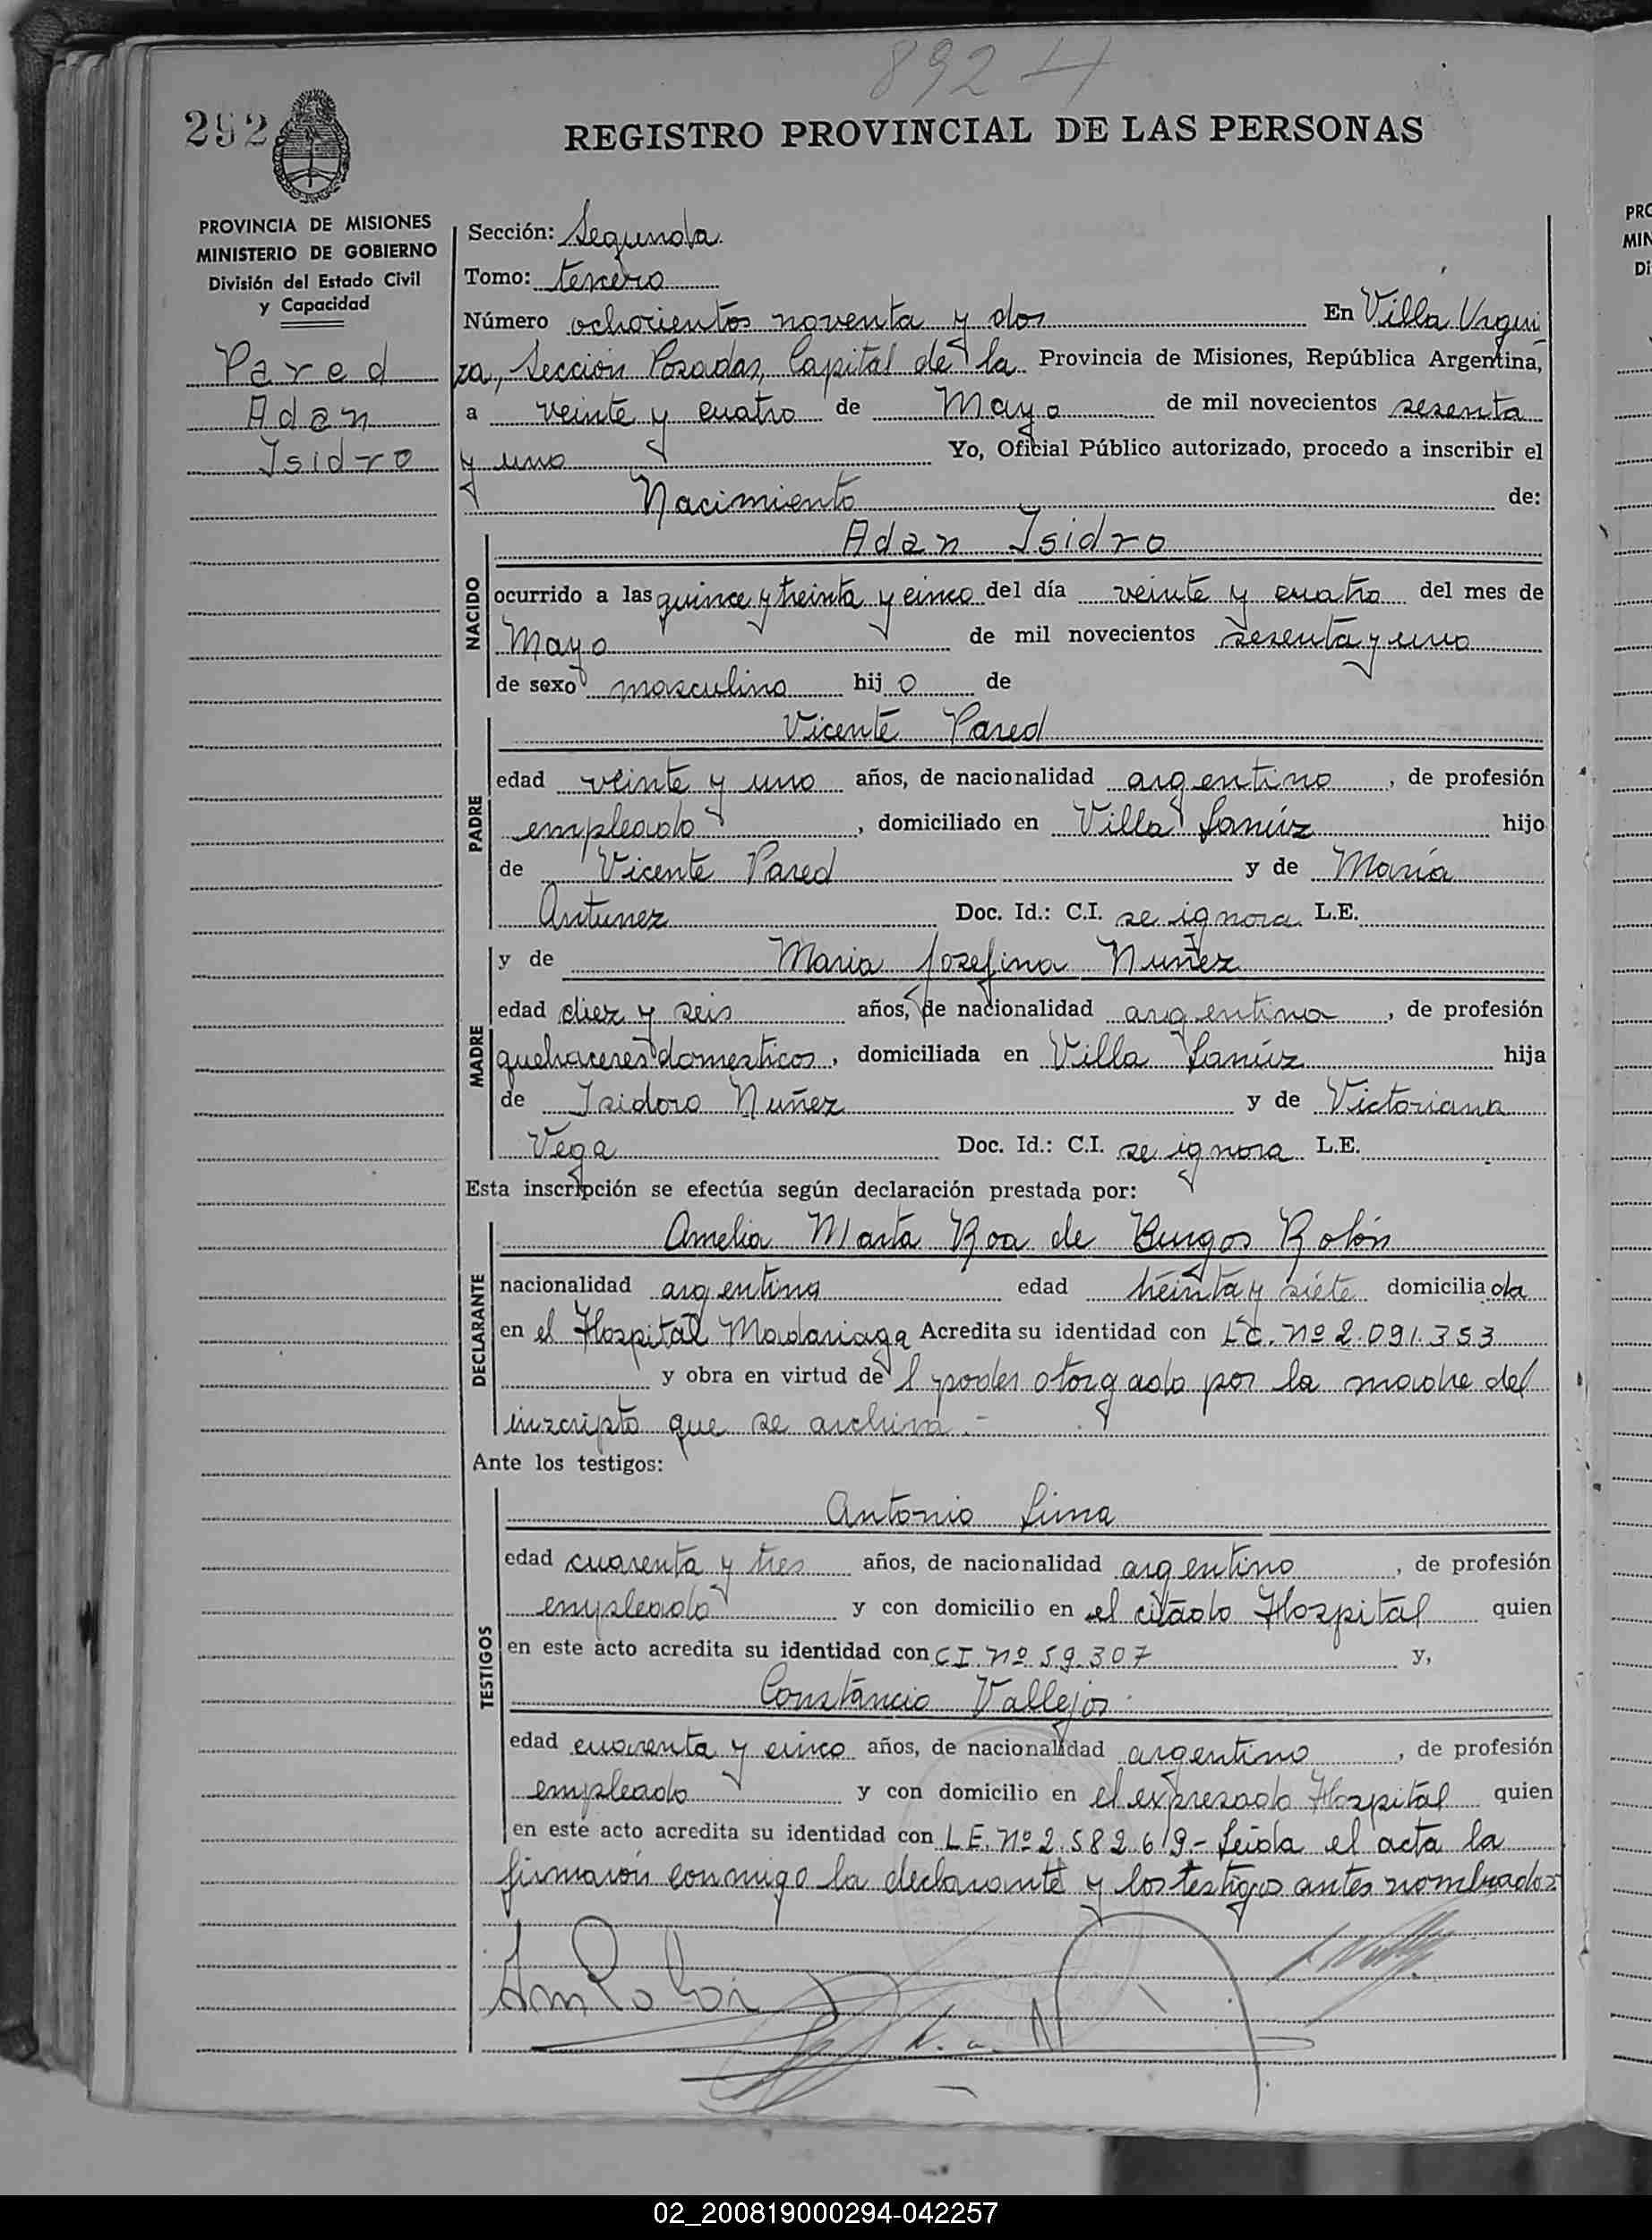 892 4
292
REGISTRO PROVINCIAL DE LAS PERSONAS
PROVINCIA DE MISIONES
MINISTERIO DE GOBIERNO
División del Estado Civil
y Capacidad
Pared
Adan
Isidro
Sección: Segunda
Tomo: tercero
Número ochocientos noventa y dos En Villa Urqui
za, Sección Posadas, Capital de la Provincia de Misiones, República Argentina,
a veinte y cuatro de Mayo de mil novecientos sesenta
y uno Yo, Oficial Público autorizado, procedo a inscribir el
Nacimiento de:
Adan Isidro
NACIDO
ocurrido a las quince y treinta y cinco del día veinte y cuatro del mes de
Mayo de mil novecientos sesenta y uno
de sexo masculino hijo de
Vicente Pared
PADRE
edad veinte y uno años, de nacionalidad argentino, de profesión
empleado, domiciliado en Villa Lanúz hijo
de Vicente Pared y de María
Antunez Doc. Id.: C.I. se ignora L.E.
MADRE
y de Maria Josefina Nuñez
edad diez y seis años, de nacionalidad argentina, de profesión
quehaceres domesticos, domiciliada en Villa Lanúz hija
de Isidoro Nuñez y de Victoriana
Vega Doc. Id.: C.I. se ignora L.E.
Esta inscripción se efectúa según declaración prestada por:
Amelia Marta Roa de Burgos Rolón
DECLARANTE
nacionalidad argentina edad treinta y siete domiciliada
en el Hospital Madariaga Acredita su identidad con L.C. Nº 2.091.353
y obra en virtud del poder otorgado por la madre del
inscripto que se archiva.-
Ante los testigos:
TESTIGOS
Antonio Lima
edad cuarenta y tres años, de nacionalidad argentino, de profesión
empleado y con domicilio en el citado Hospital quien
en este acto acredita su identidad con C I Nº 59.307 y,
Constancio Vallejos
edad cuarenta y cinco años, de nacionalidad argentino, de profesión
empleado y con domicilio en el expresado Hospital quien
en este acto acredita su identidad con L.E. Nº 2.582.619.- Leida el acta la
firmaron conmigo la declarante y los testigos antes nombrados
PRO
MIN
Di
02_200819000294-042257